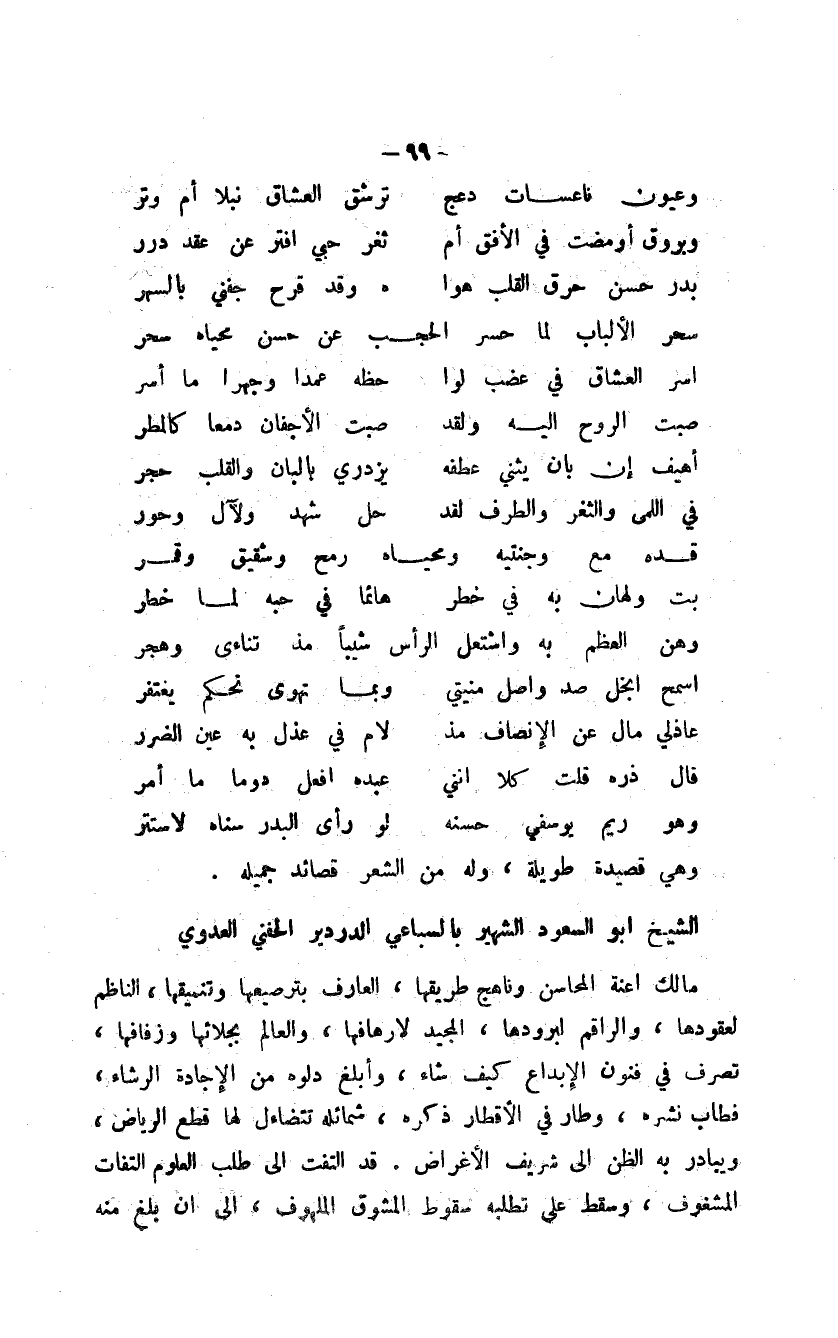 - ٩٩ -
وعيون ناعسات دعج ترشق العشاق نبلا أم وتر
وبروق أومضت في الأفق أم ثغر حبي افتر عن عقد درر
بدر حسن حرق القلب هوا ه وقد قرح جفني بالسهر
سحر الألباب لما حسر الحجب عن حسن محياه سحر
اسر العشاق في عضب لوا حظه عمدا وجهرا ما أسر
صبت الروح اليه ولقد صبت الأجفان دمعا كالمطر
أهيف إن بان يثني عطفه يزدري بالبان والقلب حجر
في اللمى والثغر والطرف لقد حل شهد ولآل وحور
قده مع وجنتيه ومحياه رمح وشقيق وقمر
بت ولهان به في خطر هائما في حبه لما خطر
وهن العظم به واشتعل الرأس شيباً مذ تناءى وهجر
اسمح ابخل صد واصل منيتي وبما تهوى تحكم يغتفر
عاذلي مال عن الإنصاف مذ لام في عذل به عين الضرر
قال ذره قلت كلا انني عبده افعل دوما ما أمر
وهو ريم يوسفي حسنه لو رأى البدر سناه لاستتر
وهي قصيدة طويلة ، وله من الشعر قصائد جميله .
الشيخ ابو السعود الشهير بالسباعي الدردير الحفني العدوي
مالك اعنة المحاسن وناهج طريقها ، العارف بترصيعها وتنميقها ، الناظم
لعقودها ، والراقم لبرودها ، المجيد لارهافها ، والعالم بجلائها وزفافها ،
تصرف في فنون الإبداع كيف شاء ، وأبلغ دلوه من الإجادة الرشاء ،
فطاب نشره ، وطار في الأقطار ذكره ، شمائله تتضاءل لها قطع الرياض ،
ويبادر به الظن الى شريف الأغراض . قد التفت الى طلب العلوم التفات
المشغوف ، وسقط على تطلبه سقوط المشوق الملهوف ، الى ان بلغ منه